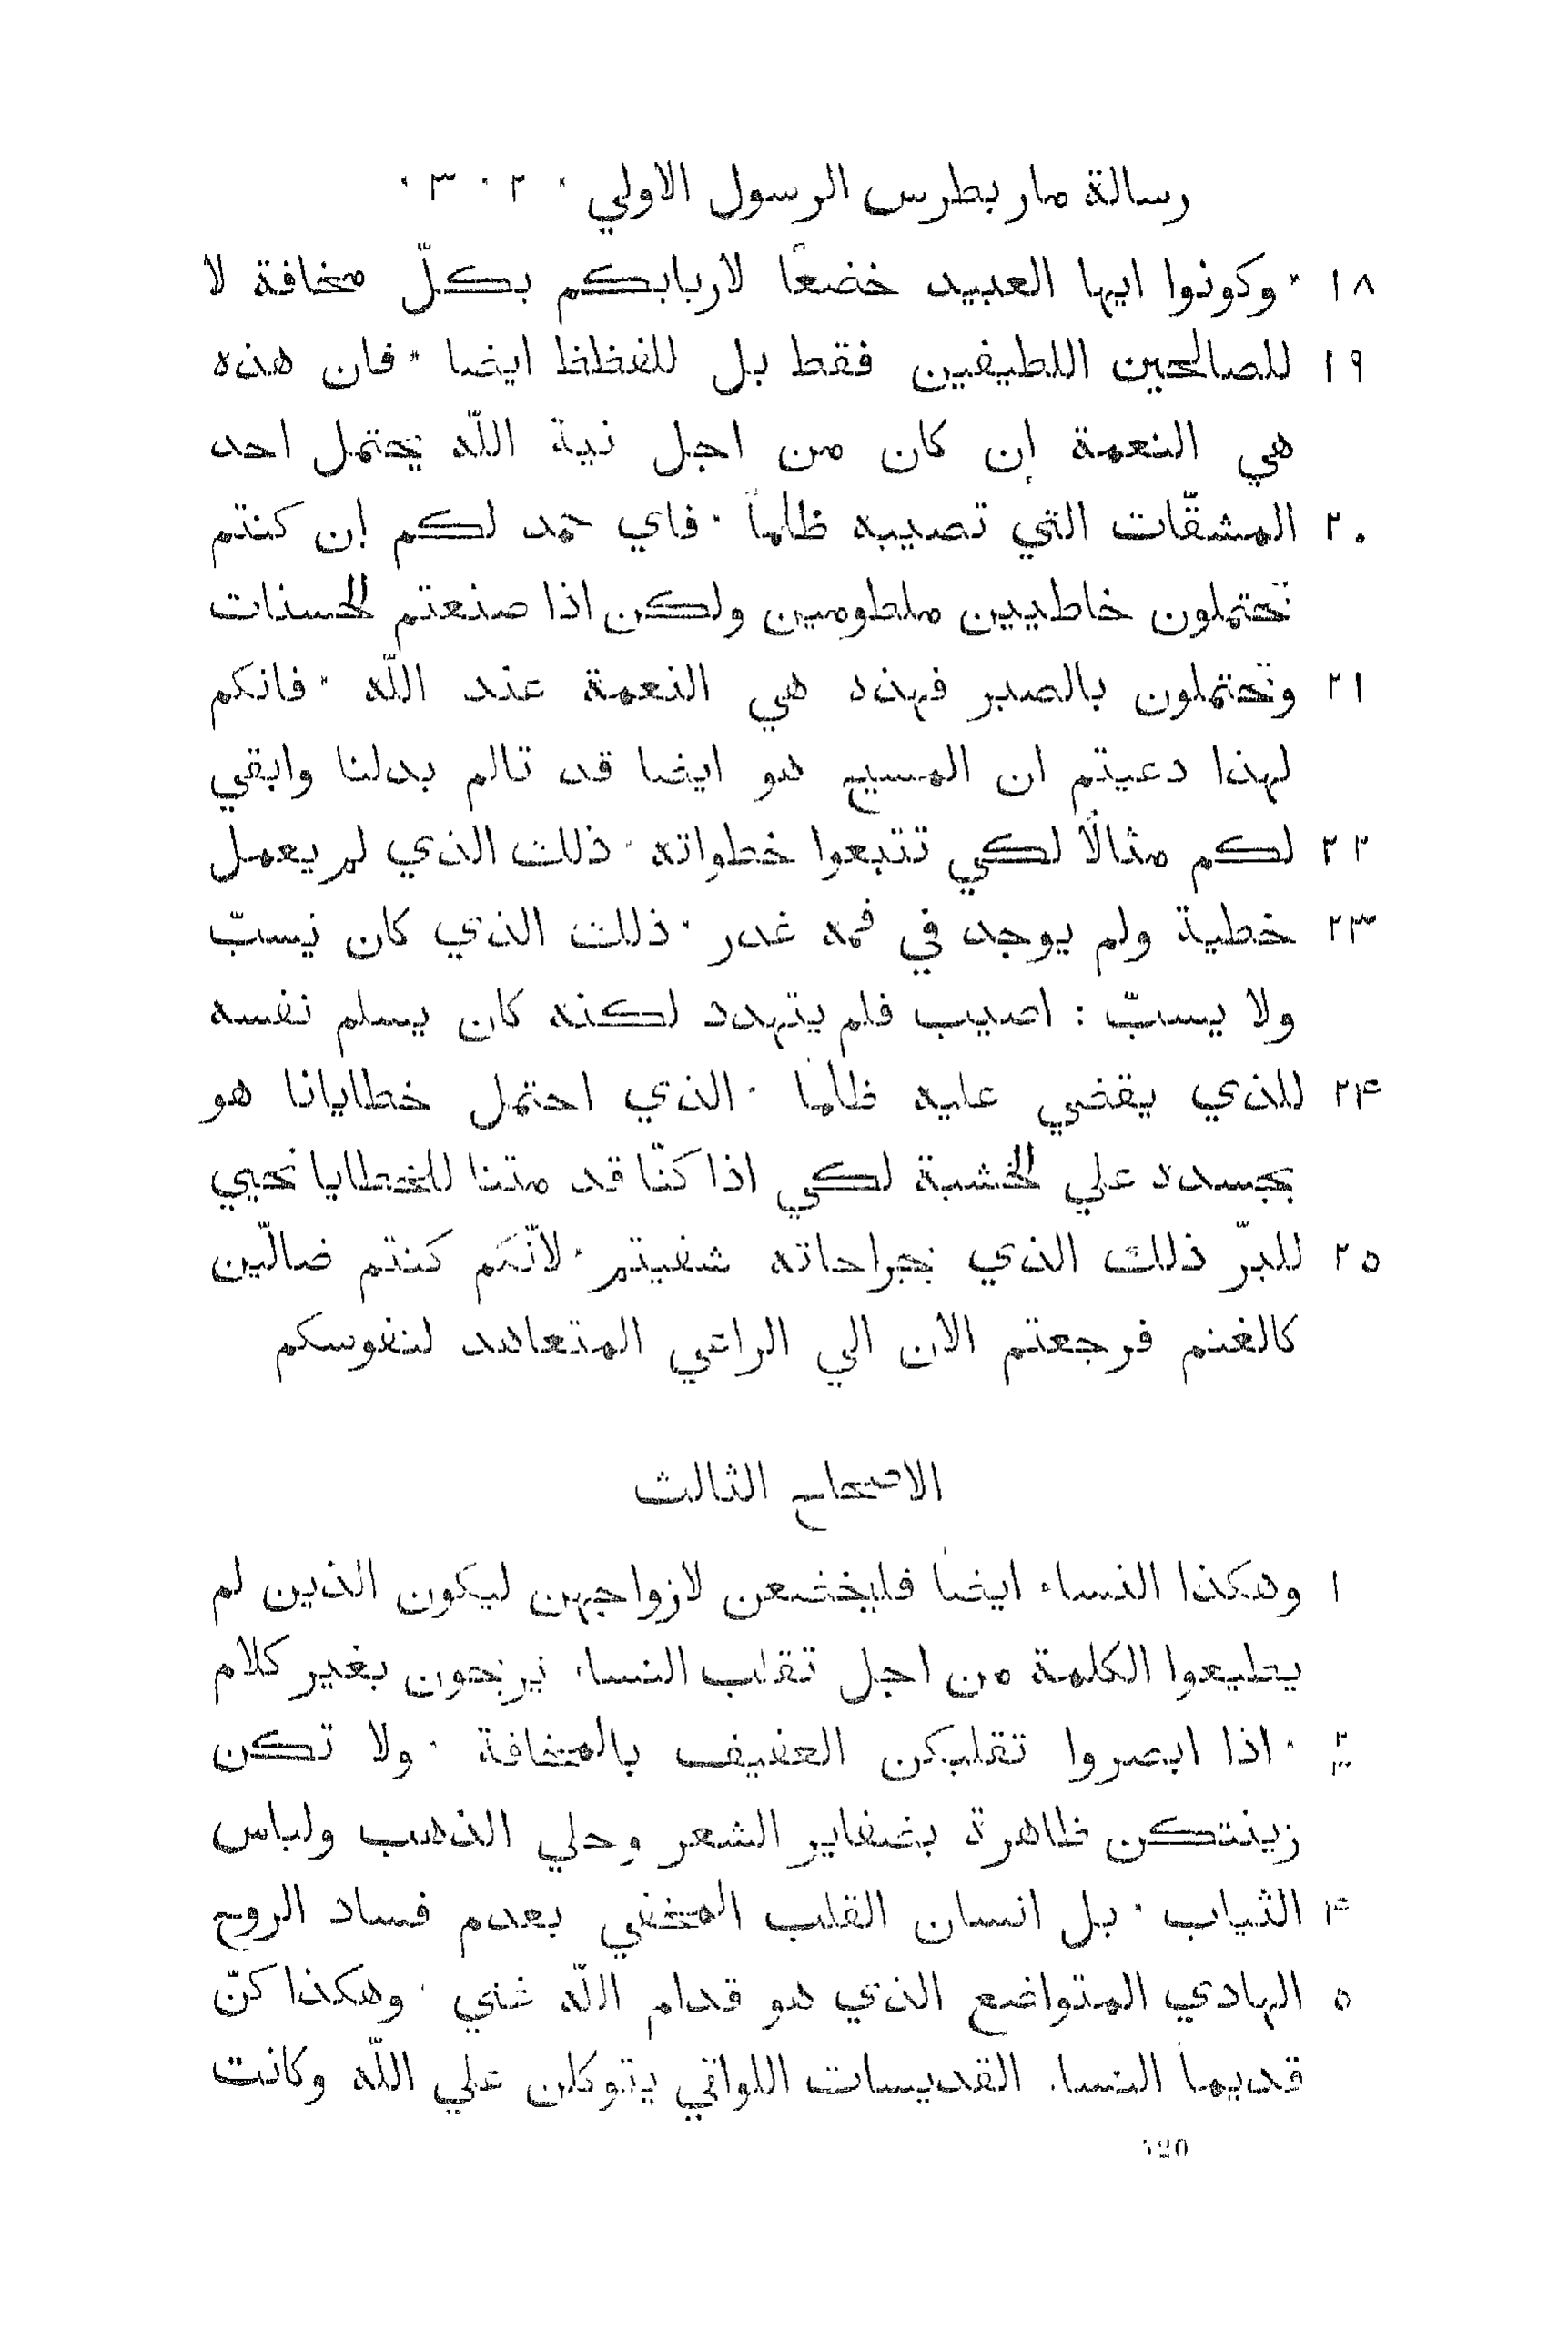 رسالة مار بطرس الرسول الاولي ٠ ٢ ٠ ٣ ٠
١٨ ٠ وكونوا ايها العبيد خضعًا لاربابكم بكلّ مخافة لا
١٩ للصالحين اللطيفين فقط بل للفظظ ايضا ٠ فان هذه
هي النعمة إن كان من اجل نية اللّه يحتمل احد
٢٠ المشقّات التي تصيبه ظلماً ٠ فاي حمد لكم إن كنتم
تحتملون خاطيين ملطومين ولكن اذا صنعتم الحسنات
٢١ وتحتملون بالصبر فهذه هي النعمة عند اللّه ٠ فانكم
لهذا دعيتم ان المسيح هو ايضا قد تالم بدلنا وابقي
٢٢ لكم مثالًا لكي تتبعوا خطواته ٠ ذلك الذي لم يعمل
٢٣ خطية ولم يوجد في فمه غدر ٠ ذلك الذي كان يسبّ
ولا يسبّ : اصيب فلم يتهدد لكنه كان يسلم نفسه
٢٤ للذي يقضي عليه ظلمًا ٠ الذي احتمل خطايانا هو
بجسده علي الخشبة لكي اذا كنّا قد متنا للخطايا نحيي
٢٥ للبرّ ذلك الذي بجراحاته شفيتم ٠ لانّكم كنتم ضالّين
كالغنم فرجعتم الان الي الراعي المتعاهد لنفوسكم
الاصحاح الثالث
١ وهكذا النساء ايضاً فليخضعن لازواجهن ليكون الذين لم
يطيعوا الكلمة من اجل تقلب النساء يربحون بغير كلام
٢ ٣ ٠ اذا ابصروا تقلبكن العفيف بالمخافة ٠ ولا تكن
زينتكن ظاهرة بضفاير الشعر وحلي الذهب ولباس
٤ الثياب ٠ بل انسان القلب المخفي بعدم فساد الروح
٥ الهادي المتواضع الذي هو قدام اللّه غني ٠ وهكذا كنّ
قديماً النساء القديسات اللواتي يتوكلن علي اللّه وكانت
120